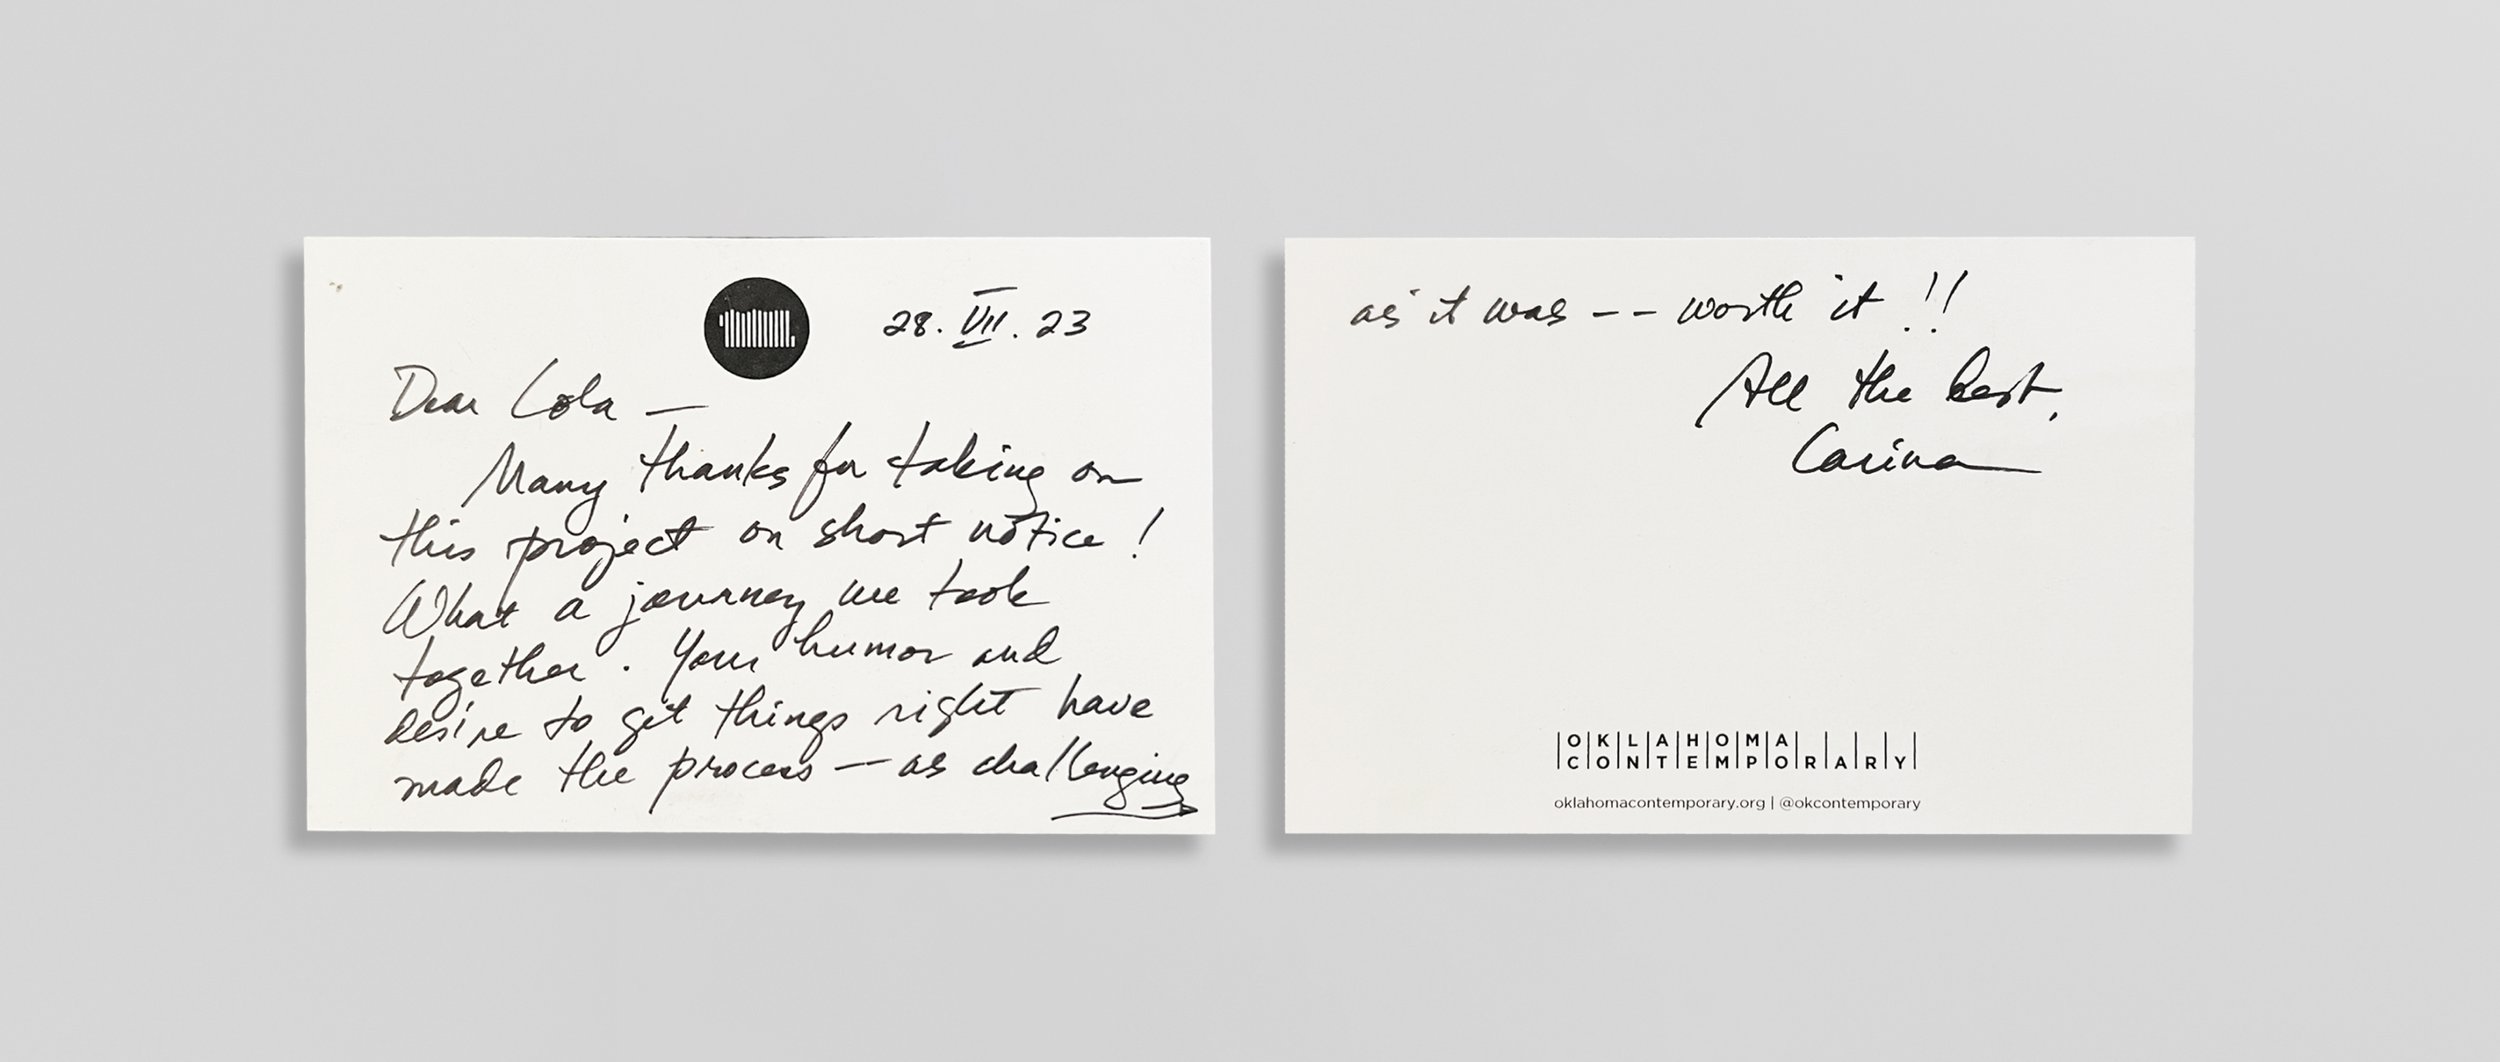 28. VII. 23
Dear Lola —
Many thanks for taking on
this project on short notice!
What a journey we took
together. Your humor and
desire to get things right have
made the process — as challenging
as it was -- worth it!!
All the best,
Carina
OKLAHOMA
CONTEMPORARY
oklahomacontemporary.org | @okcontemporary